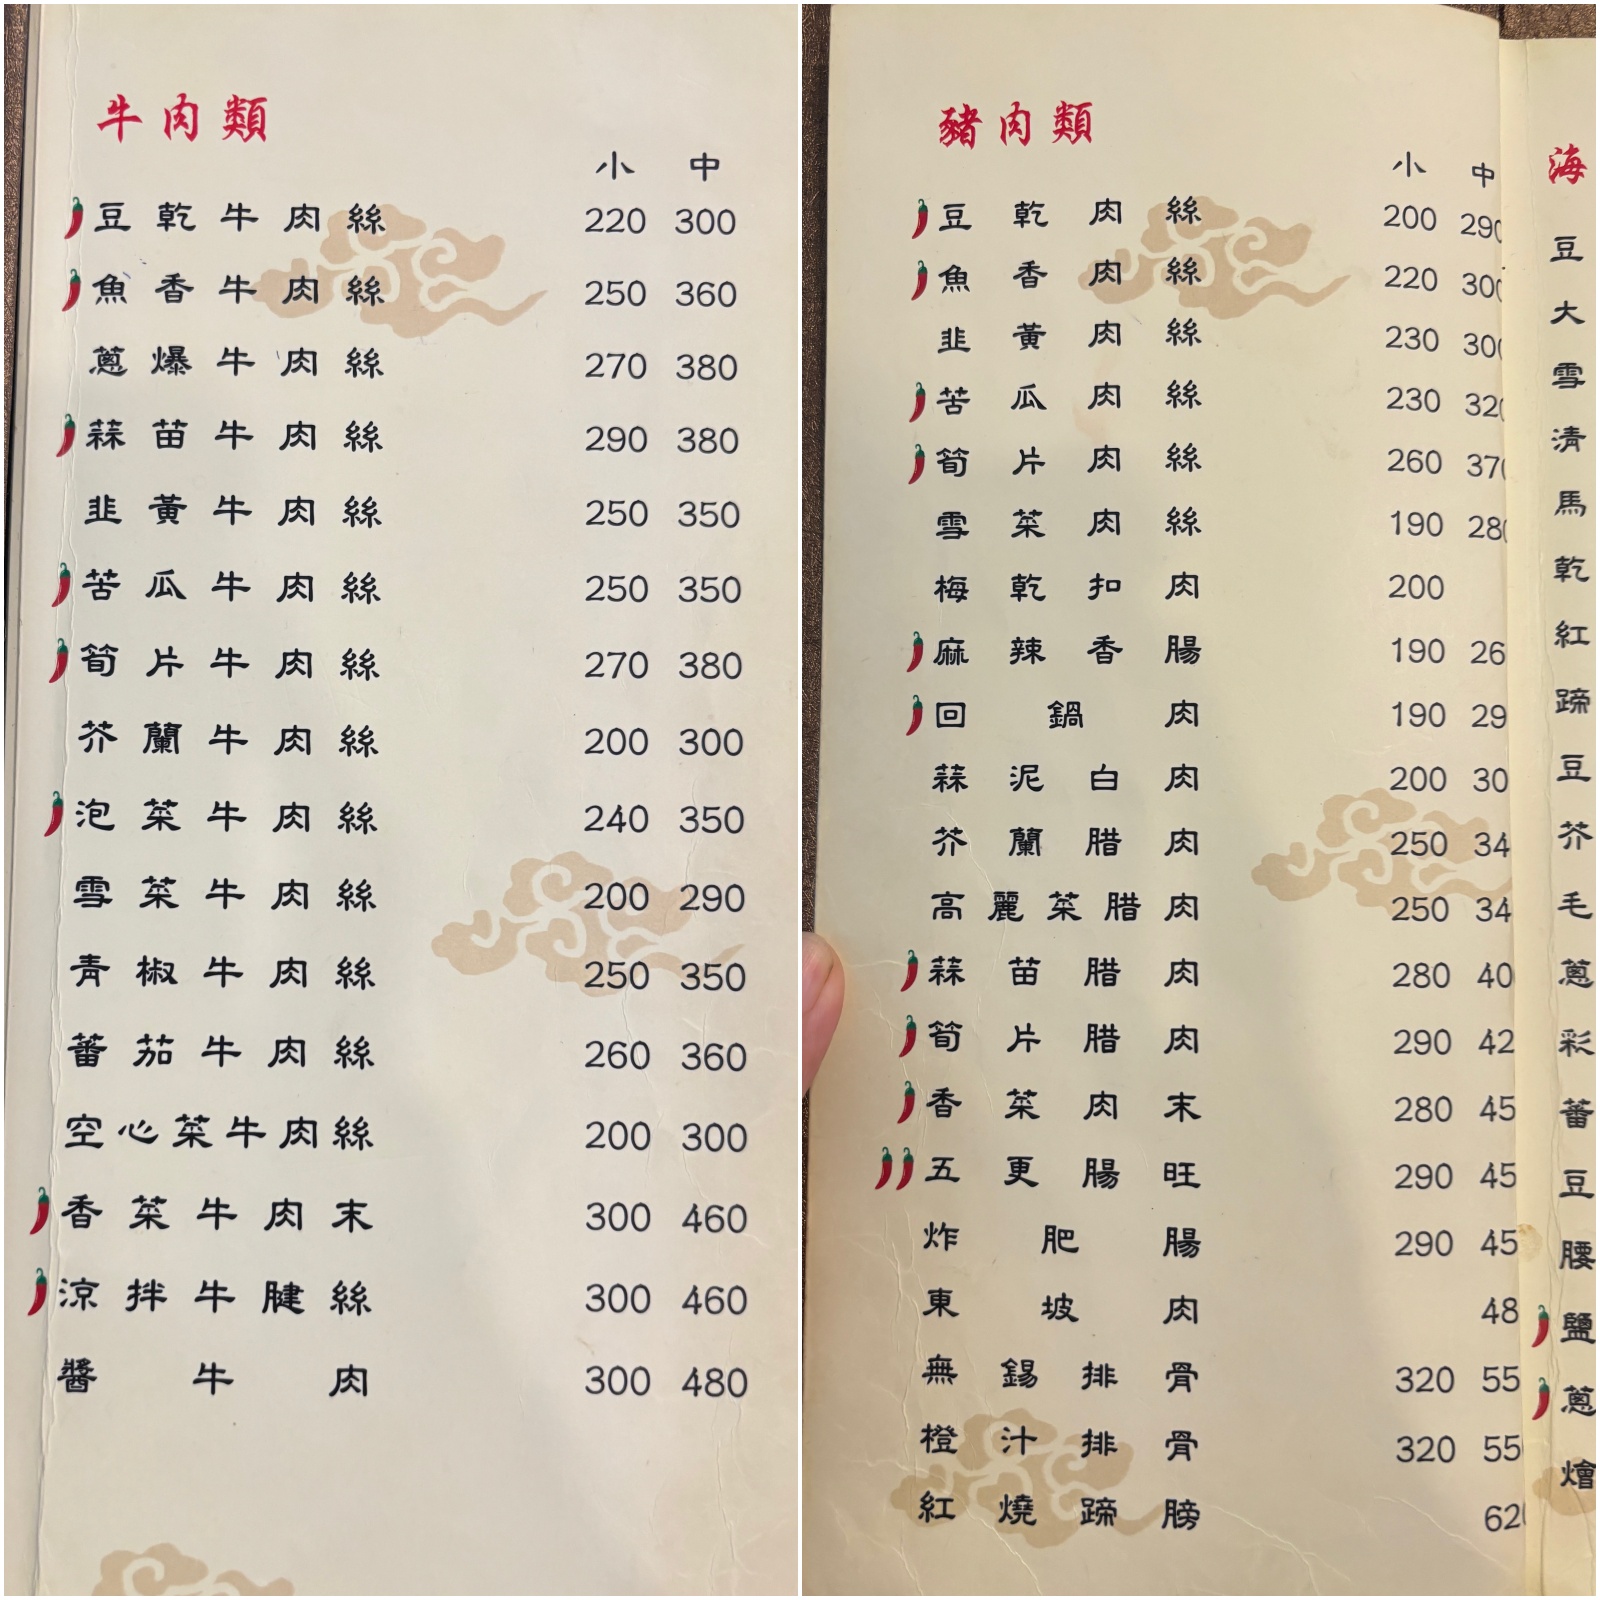 牛肉類
小 中
豆乾牛肉絲 220 300
魚香牛肉絲 250 360
蔥爆牛肉絲 270 380
蒜苗牛肉絲 290 380
韭黃牛肉絲 250 350
苦瓜牛肉絲 250 350
筍片牛肉絲 270 380
芥蘭牛肉絲 200 300
泡菜牛肉絲 240 350
雪菜牛肉絲 200 290
青椒牛肉絲 250 350
蕃茄牛肉絲 260 360
空心菜牛肉絲 200 300
香菜牛肉末 300 460
涼拌牛腱絲 300 460
醬牛肉 300 480
豬肉類
小 中
豆乾肉絲 200 290
魚香肉絲 220 300
韭黃肉絲 230 300
苦瓜肉絲 230 320
筍片肉絲 260 370
雪菜肉絲 190 280
梅乾扣肉 200
麻辣香腸 190 26
回鍋肉 190 29
蒜泥白肉 200 30
芥蘭腊肉 250 34
高麗菜腊肉 250 34
蒜苗腊肉 280 40
筍片腊肉 290 42
香菜肉末 280 45
五更腸旺 290 45
炸肥腸 290 45
東坡肉 48
無錫排骨 320 55
橙汁排骨 320 55
紅燒蹄膀 620
海
豆
大
雪
清
馬
乾
紅
蹄
豆
芥
毛
蔥
彩
蕃
豆
腰
鹽
蔥
燴